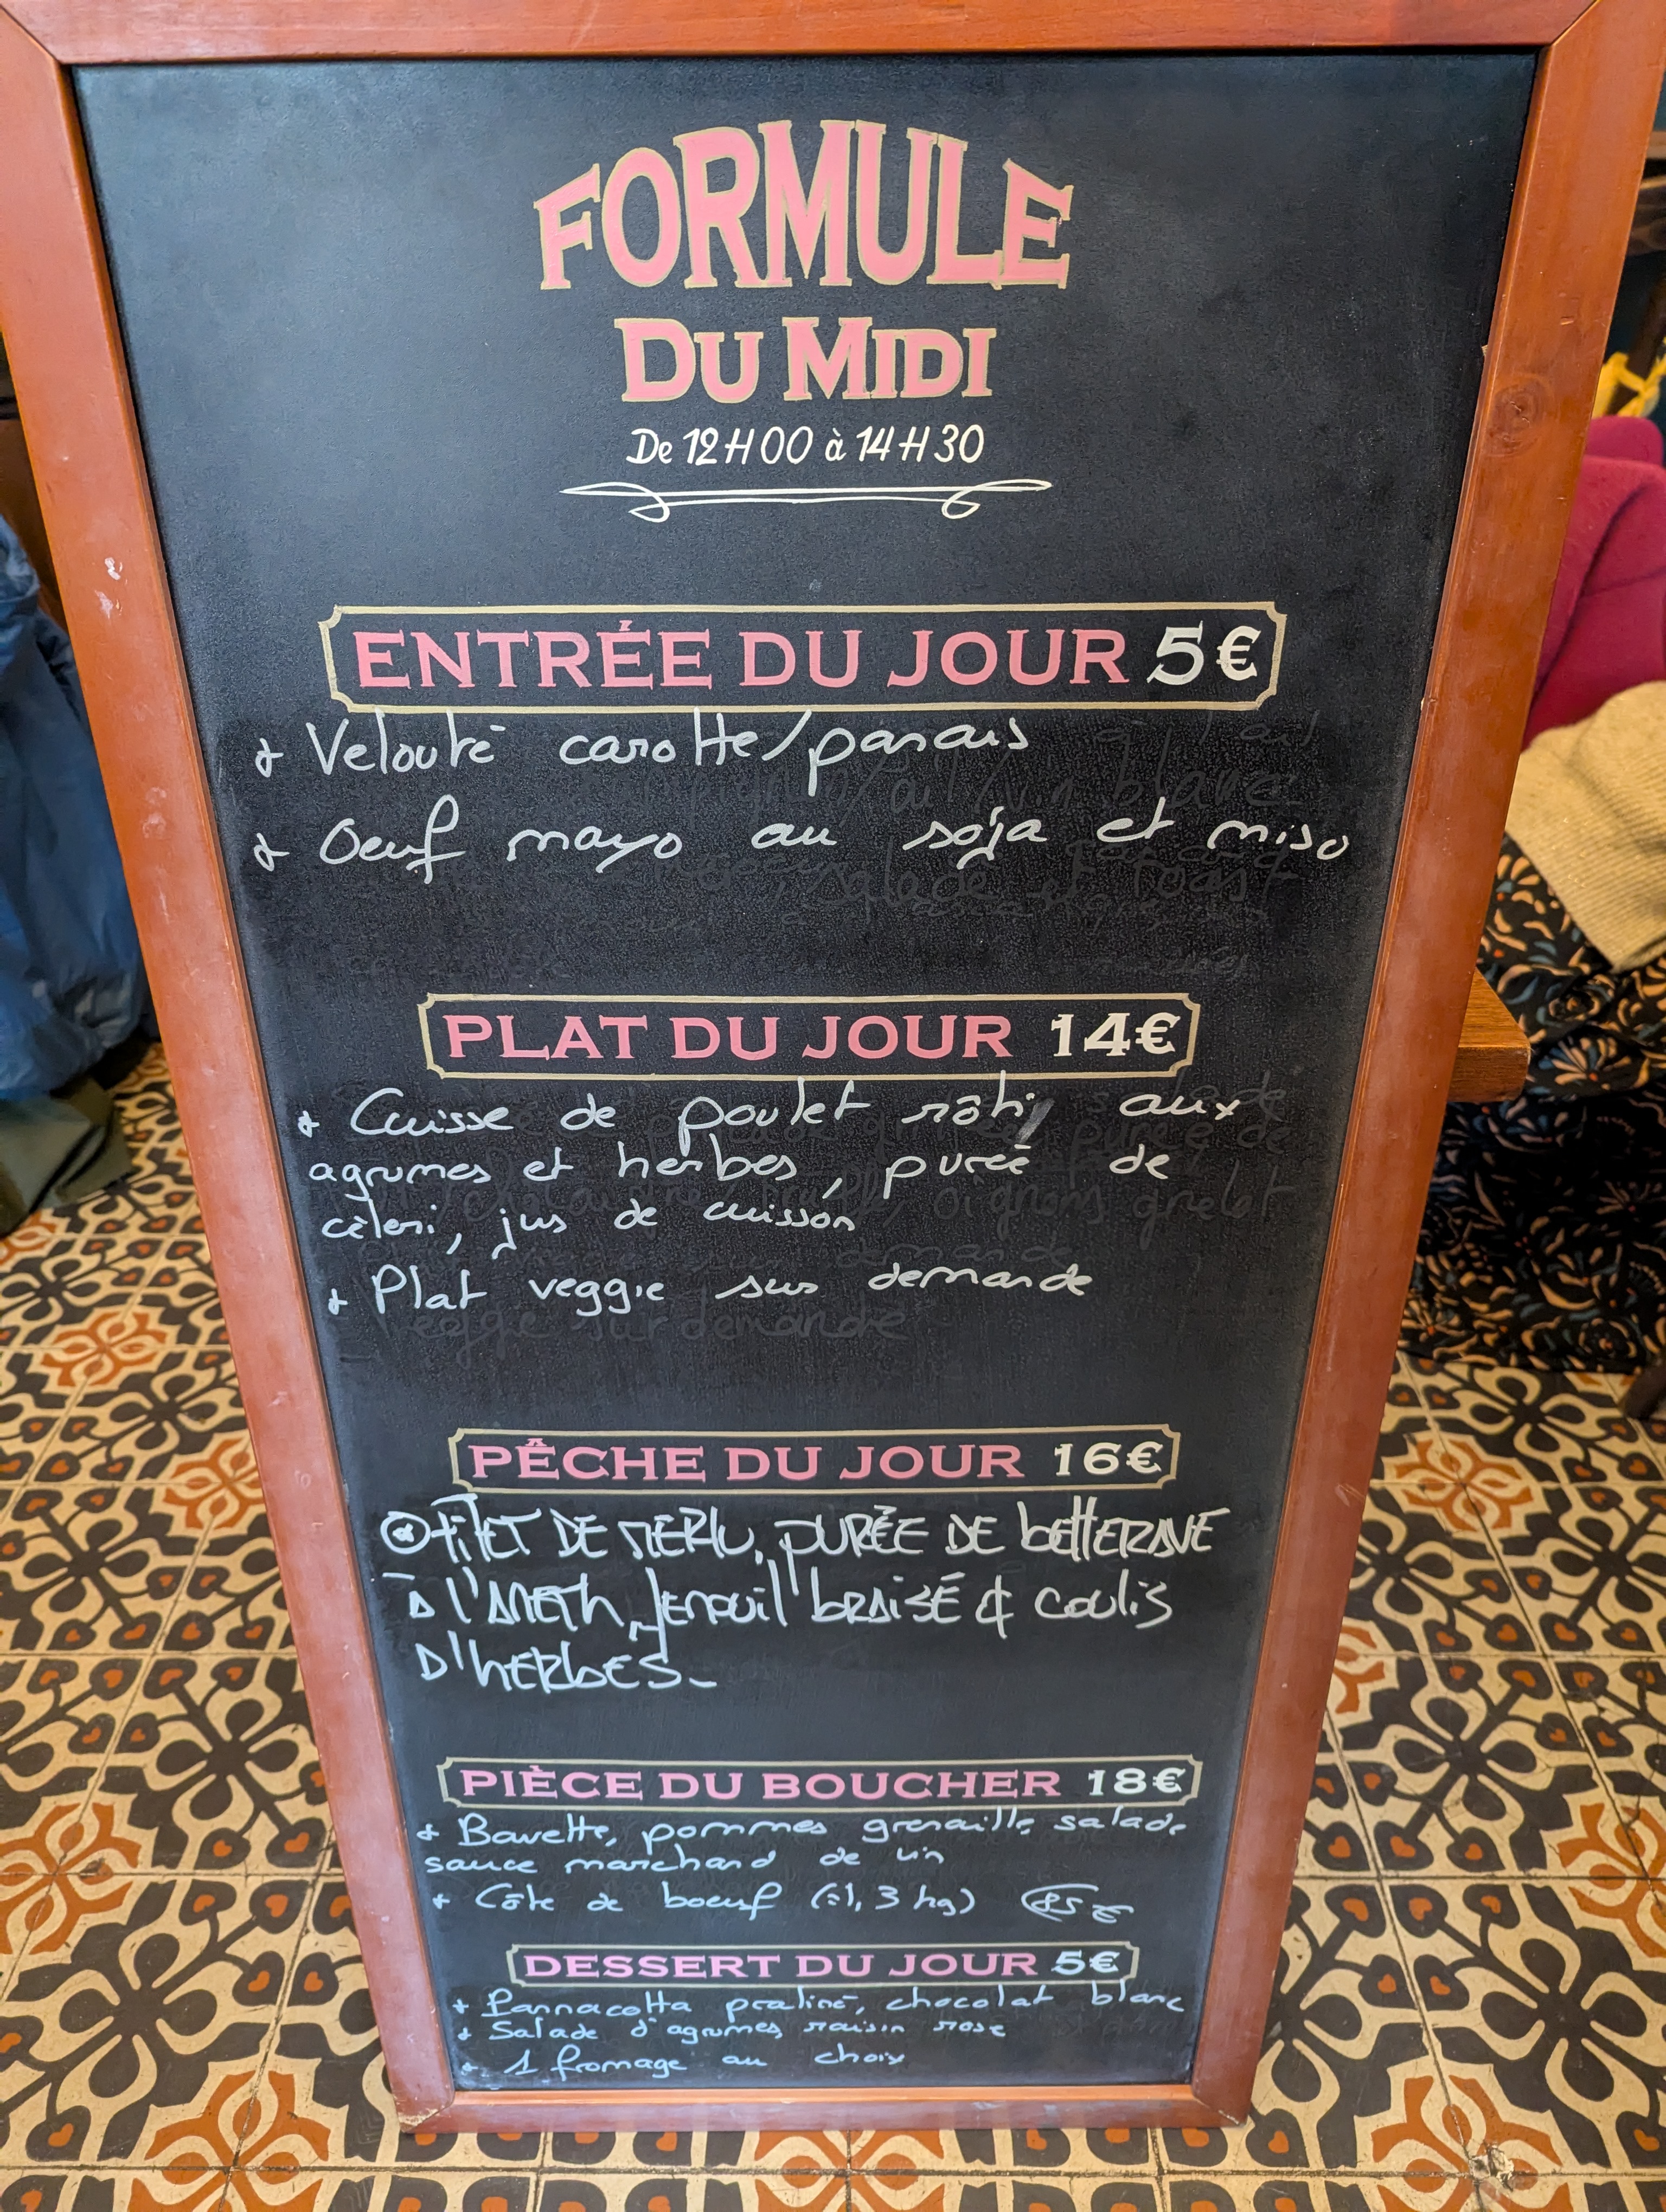 FORMULE
DU MIDI
De 12H00 à 14H30
ENTRÉE DU JOUR 5€
+ Velouté carotte/panais
+ Oeuf mayo au soja et miso
PLAT DU JOUR 14€
+ Cuisse de poulet rôti, aux
agrumes et herbes, purée de
cèleri, jus de cuisson
+ Plat veggie sur demande
PÊCHE DU JOUR 16€
FILET DE MERLU, PURÉE DE bETTERAVE
À l'ANETH, fENOUil bRAiSÉ & COULIS
D'hERbES_
PIÈCE DU BOUCHER 18€
+ Bavette, pommes grenaille, salade
sauce marchand de vin
+ Côte de boeuf (±1,3 kg) 85€
DESSERT DU JOUR 5€
+ Pannacotta praliné, chocolat blanc
+ Salade d'agrumes raisin rose
+ 1 fromage au choix